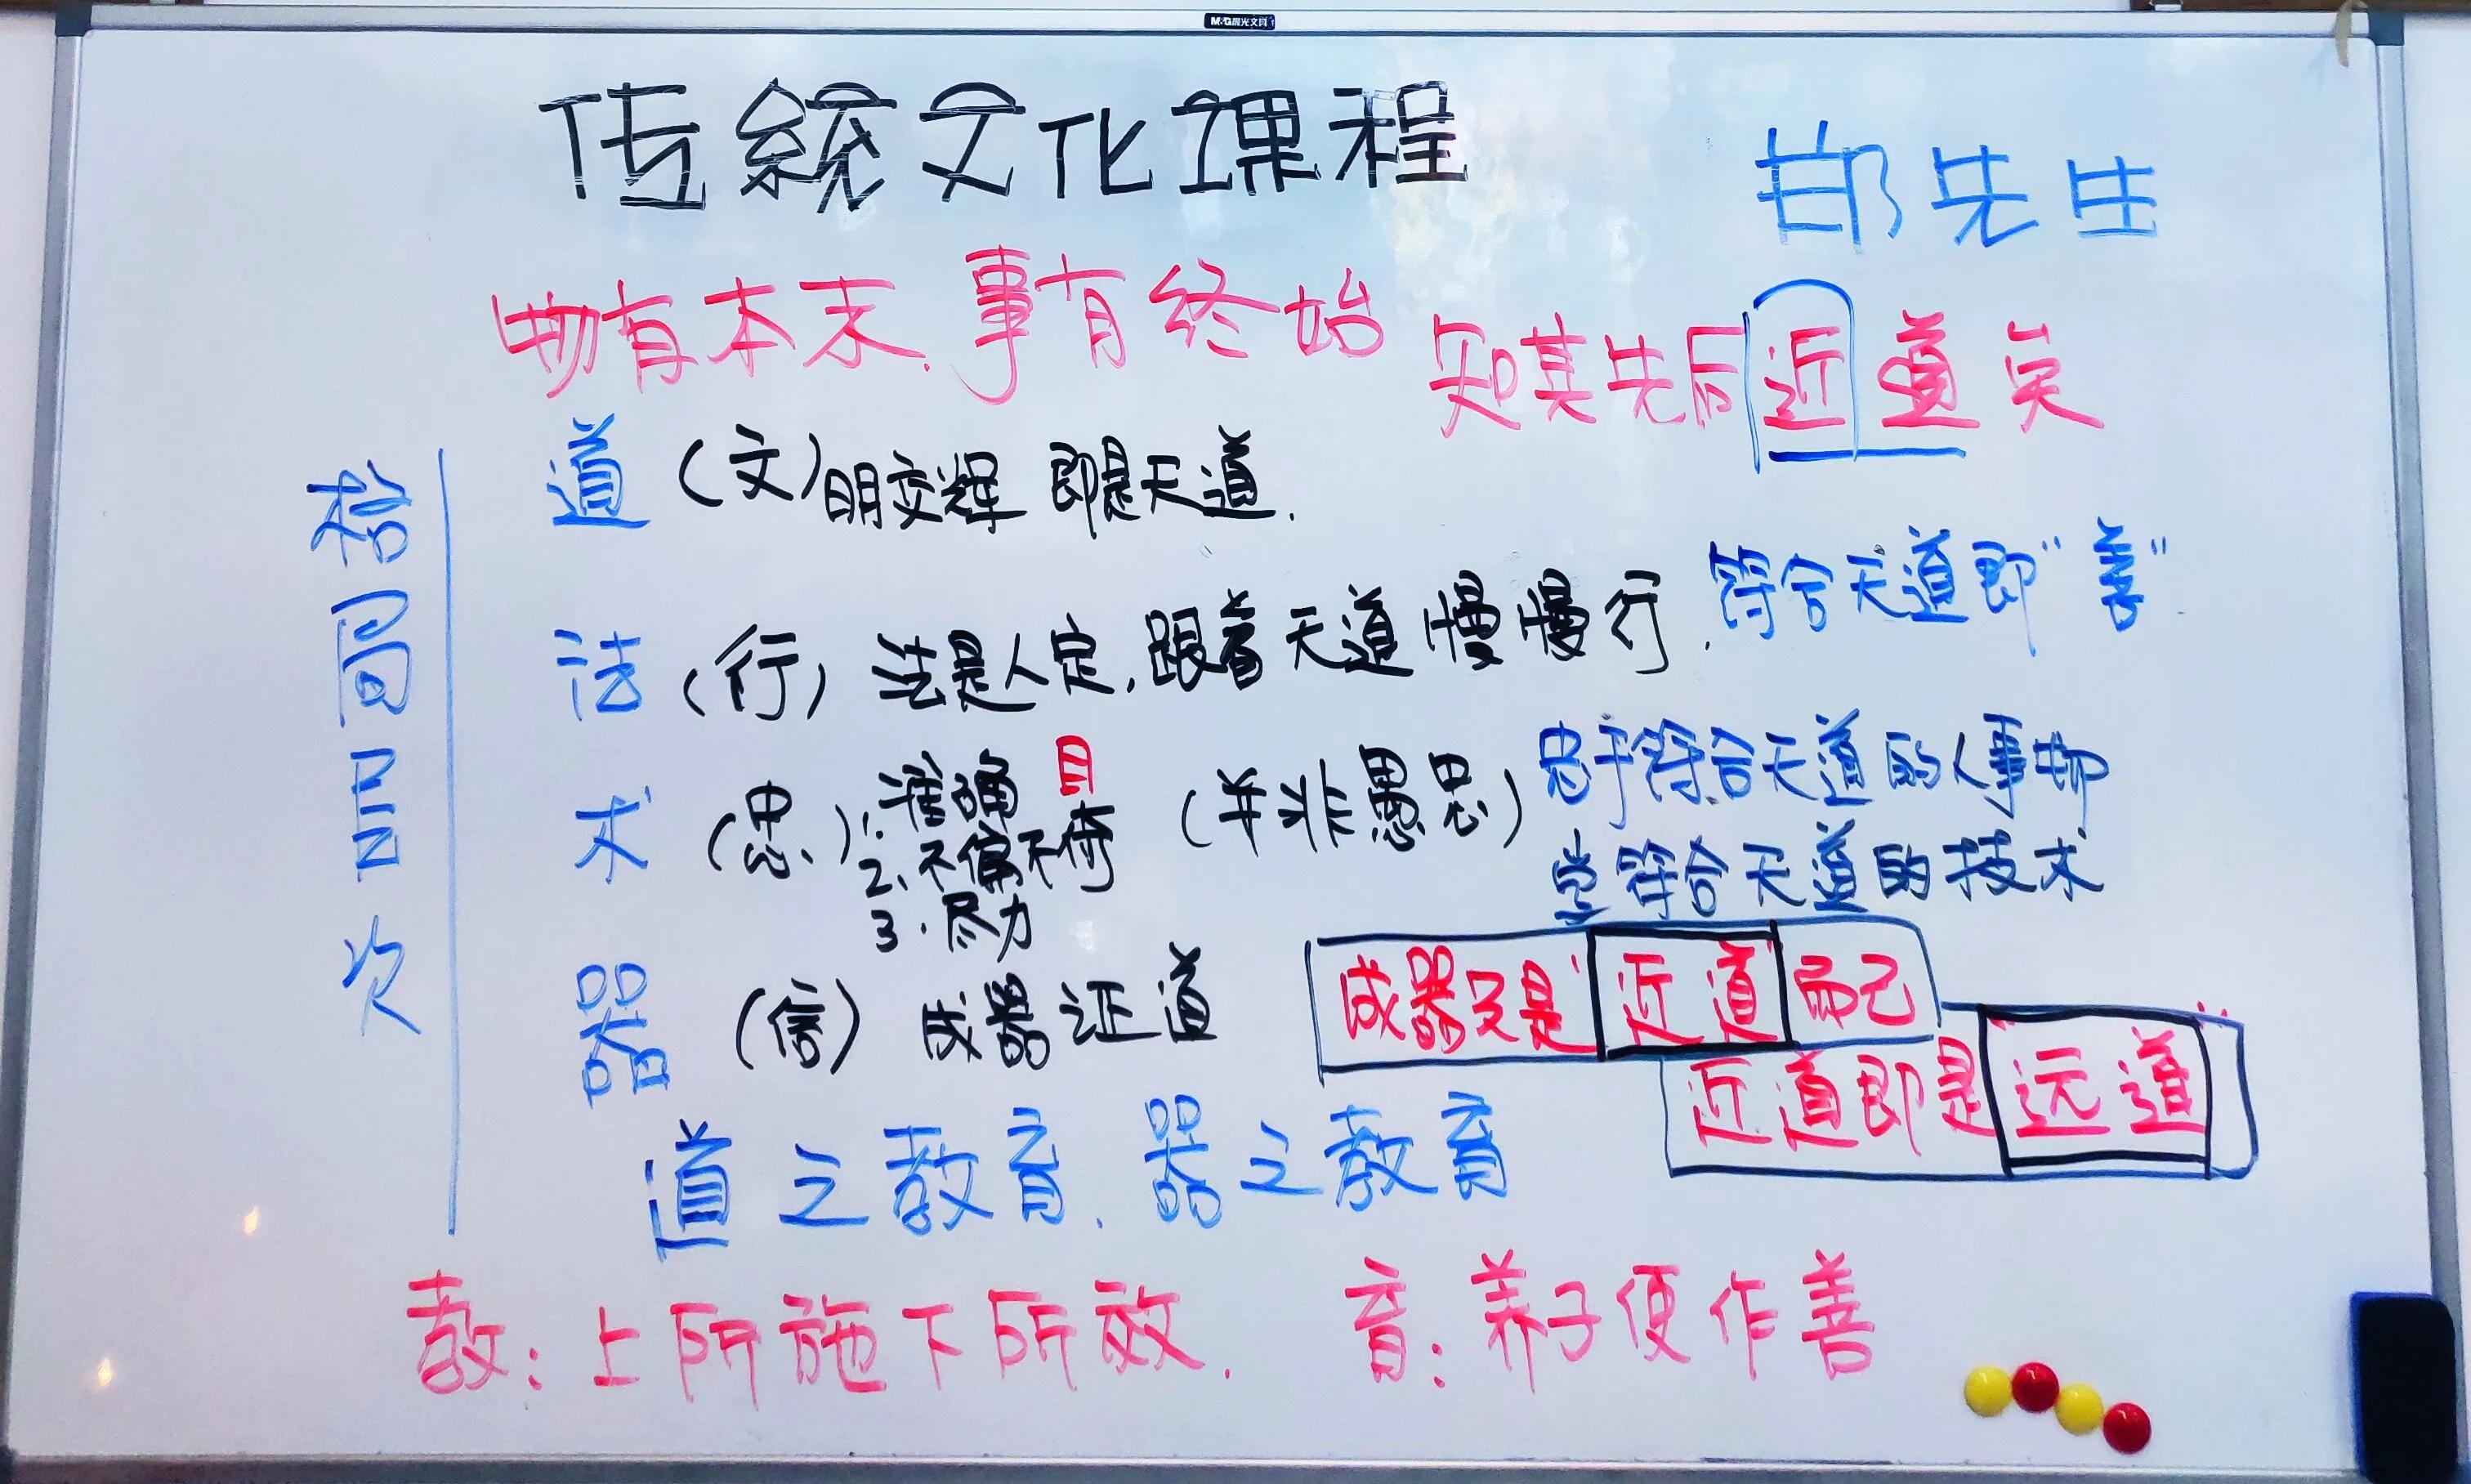 M&G晨光文具
传統文化课程
邯先生
物有本末.事有终始
知其先后近道矣
格局层次
道(文)明交辉 即是天道.
符合天道即"善"
法(行) 法是人定,跟着天道慢慢行.
术(忠)1.准确 目 (并非愚忠)
2、不偏不倚
3.尽力
忠于符合天道的人事物
学符合天道的技术
器(信) 成器证道
成器只是"近道"而已
近道即是"远道"
道之教育.器之教育
教:上所施下所效. 育:养子使作善